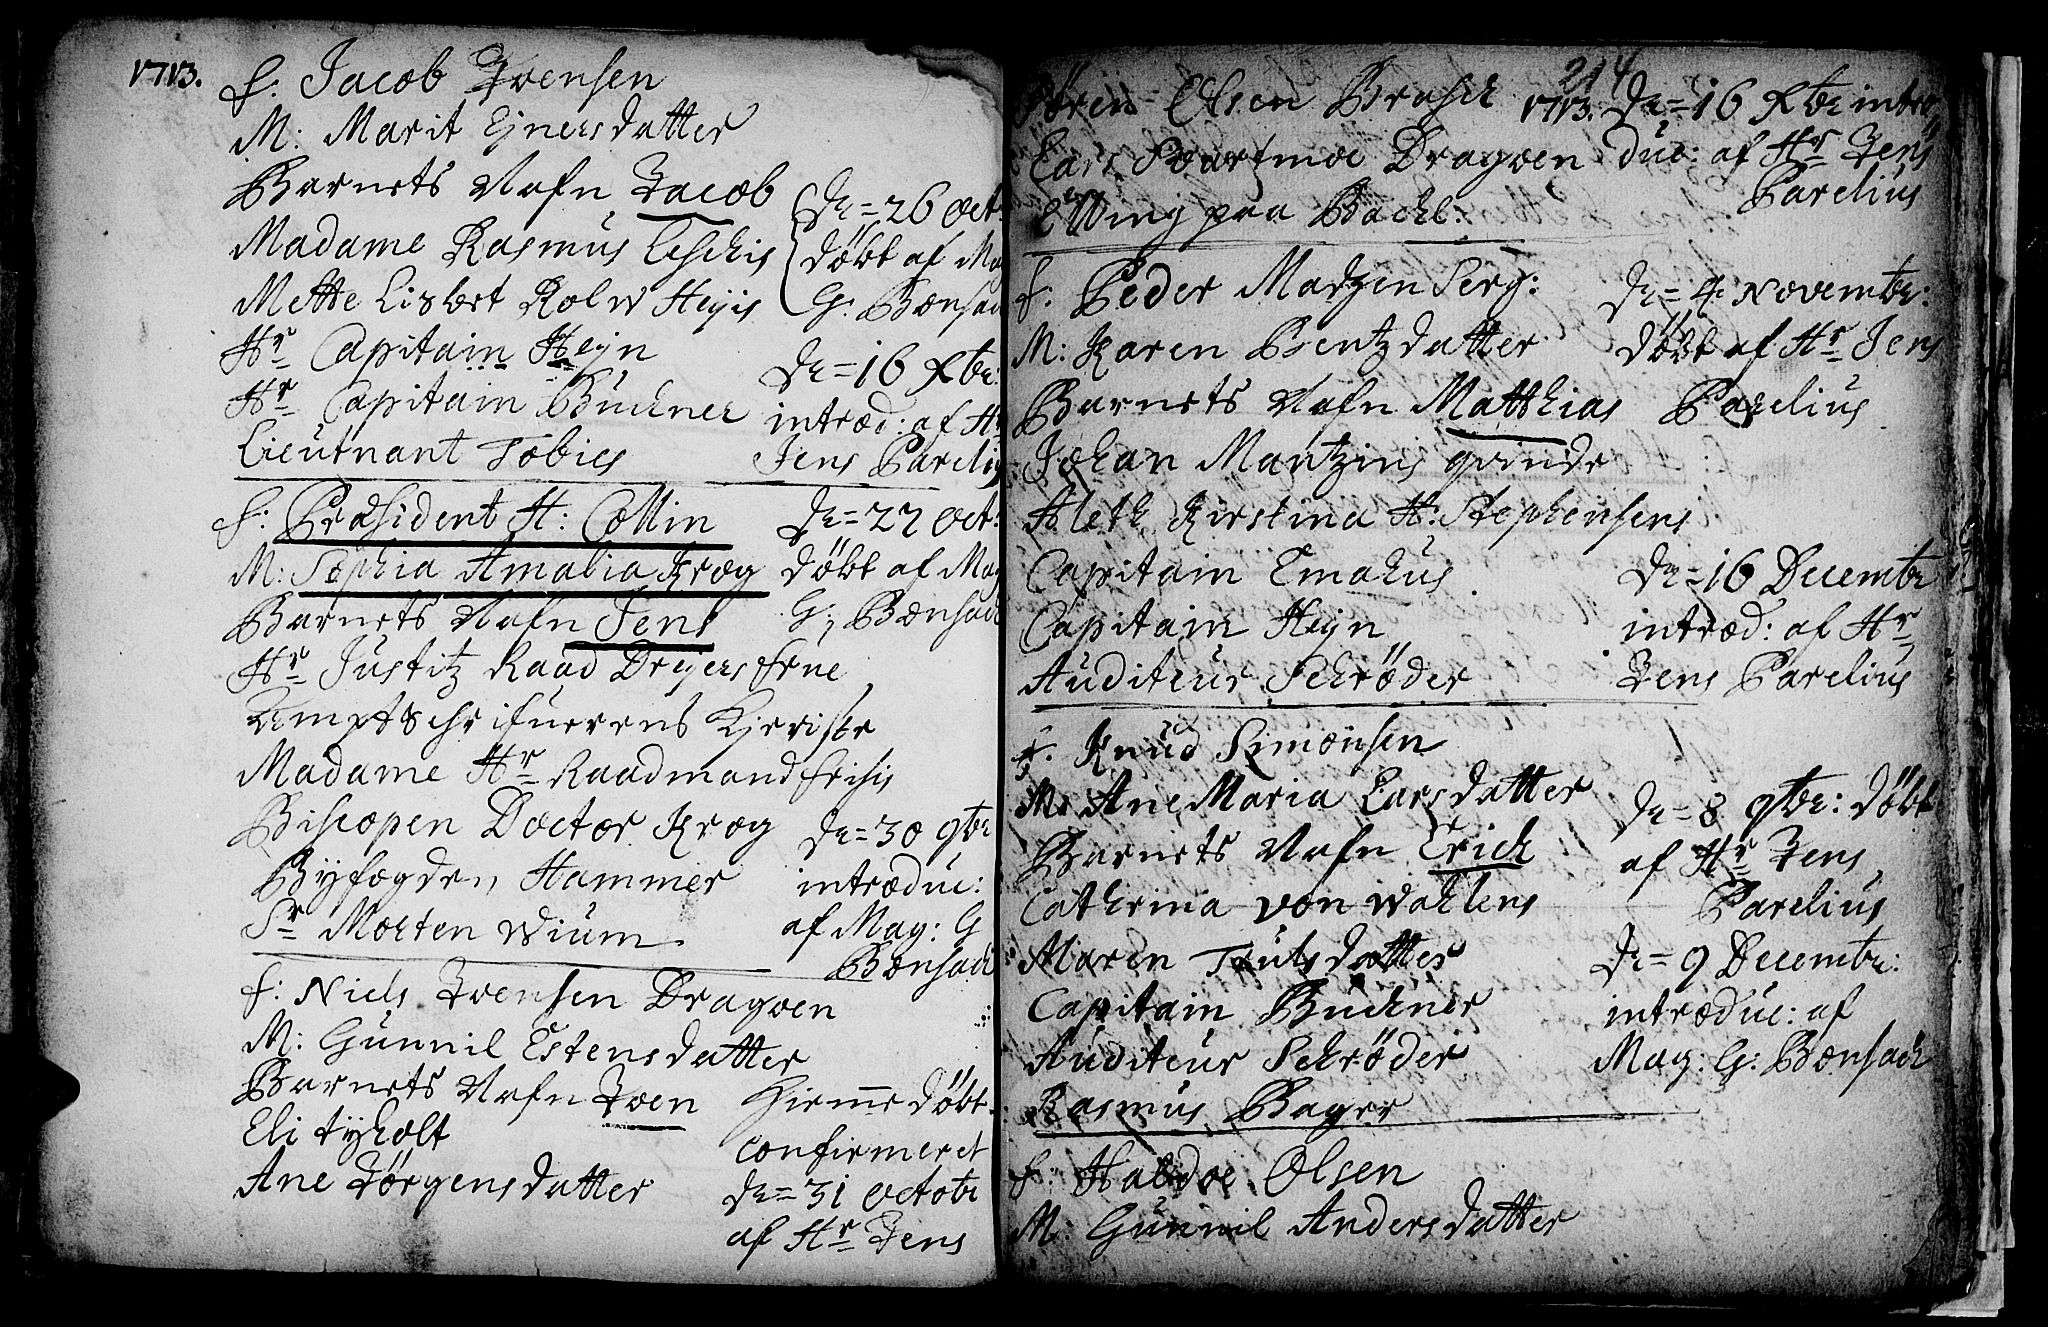 1713.
f: Jacob Ivensen
M: Marit Ejnersdatter
Barnets Nafn Jacob
Madame Rasmus Eschis
Mette Lisbet Rolw Heyis
Hr Capitain Heyn
Hr Capitain Büchner
Lieutnant Tobies
De=26 Oct:
döbt af Ma
G: Bønsac
De=16 Xbr:
introd: af Hr
Jens Pareliy
f: Præsident H: Collin
M: Sophia Amalia Krog
Barnets Nafn Jens
Hr Justitz Raad Drejers Frue
Amptschrifuerens Kieriste
Madame Hr Raadmand Frisis
Biscopen Doctor Krog
Byfogden Hammer
Sr Morten Wium
De=27 Oct:
döbt af Mag
G: Bønsac
De=30 9br
introduc:
af Mag: G
Bønsac
f: Niels Ivensen Dragoen
M: Gunnil Estensdatter
Barnets Nafn Iven
Eli Tyholt
Ane Jörgensdatter
Hiemme döbt
confirmeret
De=31 Octobr
af Hr Jens
214
Sören Olsen Brasch
Lars Svartmoe Dragoen
E Wing paa Bachl:
1713. De=16 Xbr intro
duc: af Hr Jens
Parelius
f: Peder Matzen Serg:
M: Karen Bentzdatter
Barnets Nafn Matthias
Johan Mantzins qvinde
Aleth Kirstina H: Stephensens
Capitain Emahus
Capitain Heyn
Auditeur Schröder
De=4 Novembr:
döbt af Hr Jens
Parelius
De=16 Decembr
introd: af Hr
Jens Parelius
f. Knud Simonsen
M: Ane Maria Larsdatter
Barnets Nafn Erich
Cathrina von Wahlens
Maren Trulsdatter
Capitain Buchner
Auditeur Schröder
Rasmus Bager
De=8 9br: döbt
af Hr Jens
Parelius
De=9 Decembr:
introduc: af
Mag: G: Bønsach
f: Haldoe Olsen
M: Gunnil Andersdatter